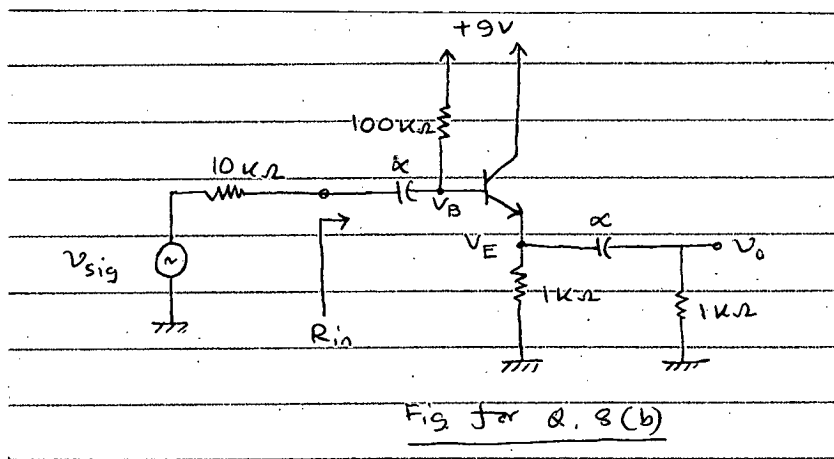 +9V
100KΩ
10KΩ
∝
V_B
V_E
∝
v_o
v_sig
1KΩ
1KΩ
R_in
Fig for Q. 8(b)